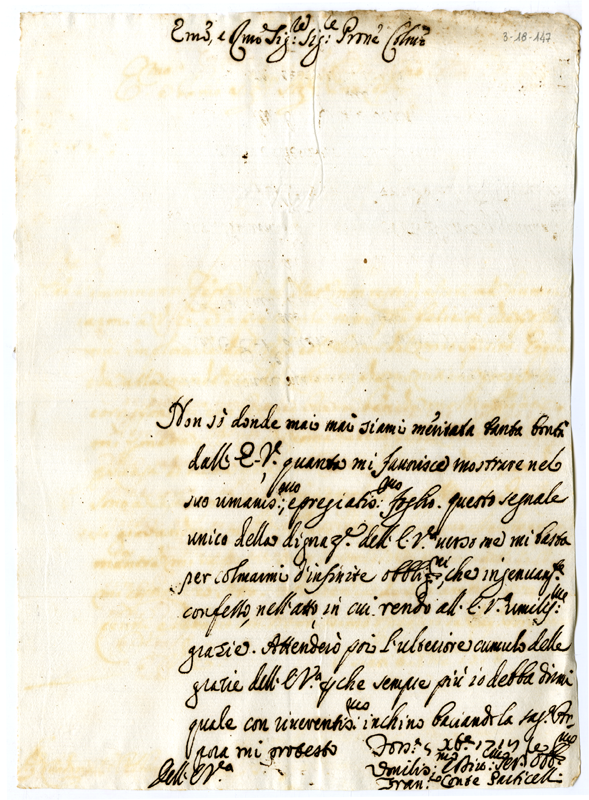 Emo, e Rmo Sig:re Sig:e Prone Colmo
3-18-147
Non sò donde mai mai siami meritata tanta bontà
dall. E. V.a quanta mi favorisce mostrare nel
suo umaniss:mo, e pregiatis:mo foglio. questo segnale
unico della dignaz.e dell. E. V.a verso me mi basta
per colmarmi d'infinite obbligni, che ingenuam.te
confesso, nell'atto in cui rendo all. E. V.a umiliss:me
grazie. Attenderò poi l'ulteriore cumulo delle
gratie dell. E V.a che sempre più io debba dirmi
quale con riverentis:mo inchino baciando la sag.a Por-
pora mi protesto
Dell. E V.a
Umilis:mo Serv.e Obb:mo
Fran:co Conte